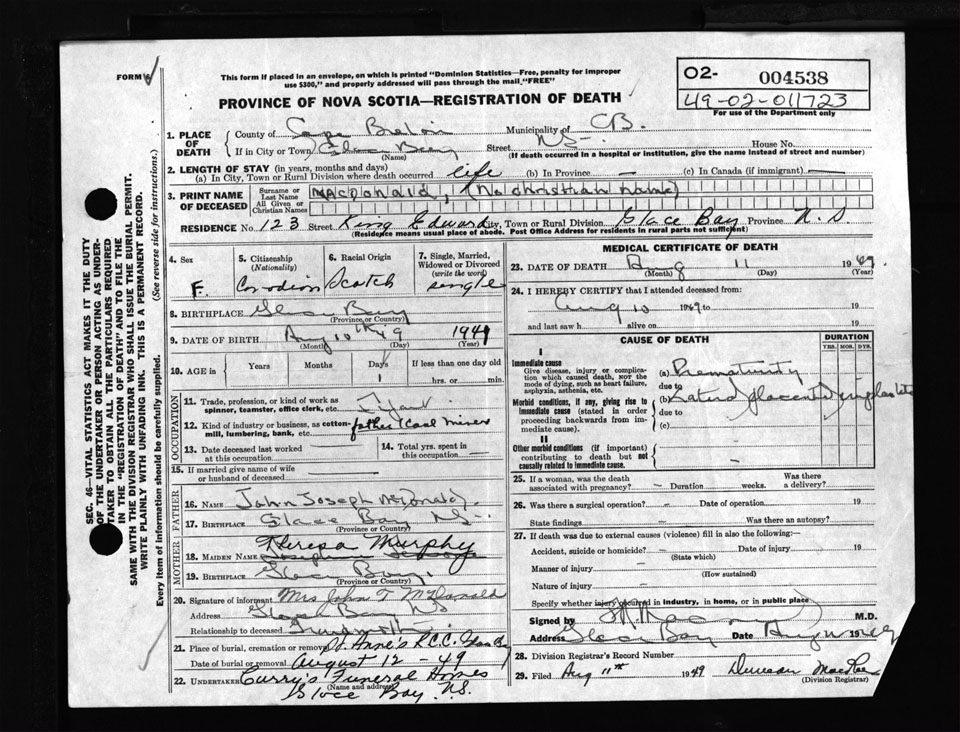 FORM 6
This form if placed in an envelope, on which is printed "Dominion Statistics—Free, penalty for improper
use $300," and properly addressed will pass through the mail "FREE"
PROVINCE OF NOVA SCOTIA—REGISTRATION OF DEATH
02- 004538
49-02-011723
For use of the Department only
SEC. 46—VITAL STATISTICS ACT MAKES IT THE DUTY
OF THE UNDERTAKER OR PERSON ACTING AS UNDER-
TAKER TO OBTAIN ALL THE PARTICULARS REQUIRED
IN THE "REGISTRATION OF DEATH" AND TO FILE THE
SAME WITH THE DIVISION REGISTRAR WHO SHALL ISSUE THE BURIAL PERMIT.
WRITE PLAINLY WITH UNFADING INK. THIS IS A PERMANENT RECORD.
Every item of information should be carefully supplied. (See reverse side for instructions.)
1. PLACE OF DEATH
County of Cape Breton Municipality of CB.
If in City or Town Glace Bay Street NS- House No.
(Name) (If death occurred in a hospital or institution, give the name instead of street and number)
2. LENGTH OF STAY (in years, months and days)
(a) In City, Town or Rural Division where death occurred life (b) In Province — (c) In Canada (if immigrant) —
3. PRINT NAME OF DECEASED
Surname or Last Name MACDONALD, (No christian name)
All Given or Christian Names
RESIDENCE No. 123 Street King Edward City, Town or Rural Division Glace Bay Province N.S.
(Residence means usual place of abode. Post Office Address for residents in rural parts not sufficient)
4. Sex
F.
5. Citizenship (Nationality)
Canadian
6. Racial Origin
Scotch
7. Single, Married, Widowed or Divorced (write the word)
single
8. BIRTHPLACE Glace Bay
(Province or Country)
9. DATE OF BIRTH Aug 10th 49 1949
(Month) (Day) (Year)
10. AGE in
Years Months Days
1
If less than one day old
hrs. or min.
OCCUPATION
11. Trade, profession, or kind of work as
spinner, teamster, office clerk, etc. Infant
12. Kind of industry or business, as cotton-
mill, lumbering, bank, etc. father (Coal miner
13. Date deceased last worked
at this occupation
14. Total yrs. spent in
this occupation
15. If married give name of wife
or husband of deceased
FATHER
16. Name John Joseph McDonald
17. Birthplace Glace Bay, NS-
(Province or Country)
MOTHER
Theresa Murphy
18. Maiden Name
19. Birthplace Glace Bay.
(Province or Country)
20. Signature of informant Mrs John T McDonald
Address Glace Bay NS
Relationship to deceased Grandmother
21. Place of burial, cremation or removal St. Anne's R.C.C.
Date of burial or removal August 12 - 49
22. UNDERTAKER Curry's Funeral Homes
(Name and address)
Glace Bay N.S.
MEDICAL CERTIFICATE OF DEATH
23. DATE OF DEATH Aug 11 1949
(Month) (Day) (Year)
24. I HEREBY CERTIFY that I attended deceased from:
Aug 10 1949 to 19
and last saw h alive on 19
CAUSE OF DEATH
DURATION
YRS. MOS. DYS.
I
Immediate cause
Give disease, injury or complica-
tion which caused death, not the
mode of dying, such as heart failure,
asphyxia, asthenia, etc.
(a) Prematurity
due to
Morbid conditions, if any, giving rise to
immediate cause (stated in order
proceeding backwards from im-
mediate cause).
(b) placenta
due to
(c)
II
Other morbid conditions (if important)
contributing to death but not
causally related to immediate cause.
—
25. If a woman, was the death
associated with pregnancy? — Duration weeks.
Was there
a delivery?
26. Was there a surgical operation? — Date of operation 19
State findings — Was there an autopsy?
27. If death was due to external causes (violence) fill in also the following:—
Accident, suicide or homicide? — Date of injury 19
(State which)
Manner of injury —
(How sustained)
Nature of injury —
Specify whether injury occurred in industry, in home, or in public place
Signed by M.D.
Address Glace Bay Date Aug 11 1949
28. Division Registrar's Record Number
29. Filed Aug 11th 1949 Duncan MacRae
(Division Registrar)